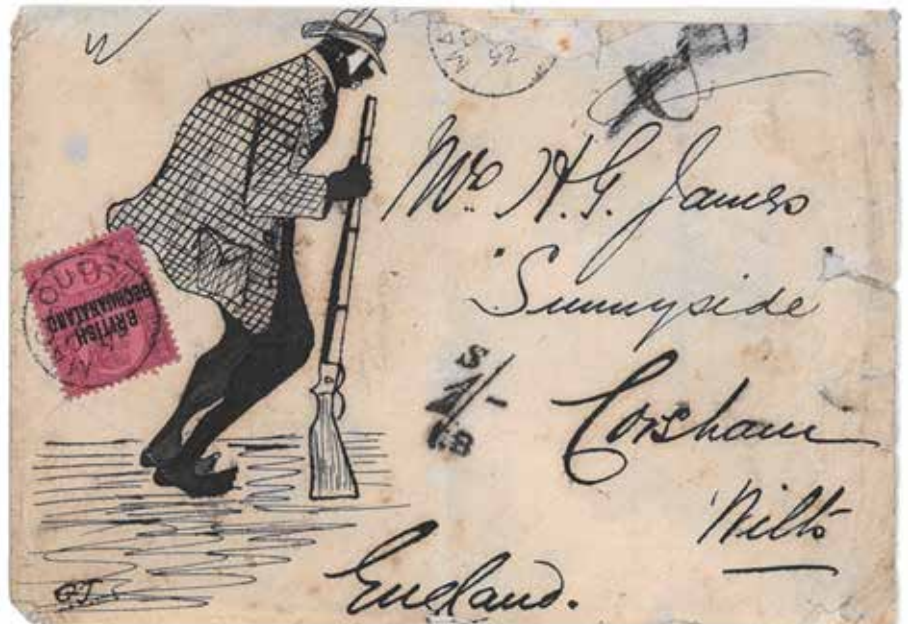 Mr. H.G. James
"Sunnyside"
Corsham
Wilts
England.
BRITISH
BECHUANALAND
S
1/-
G.J.